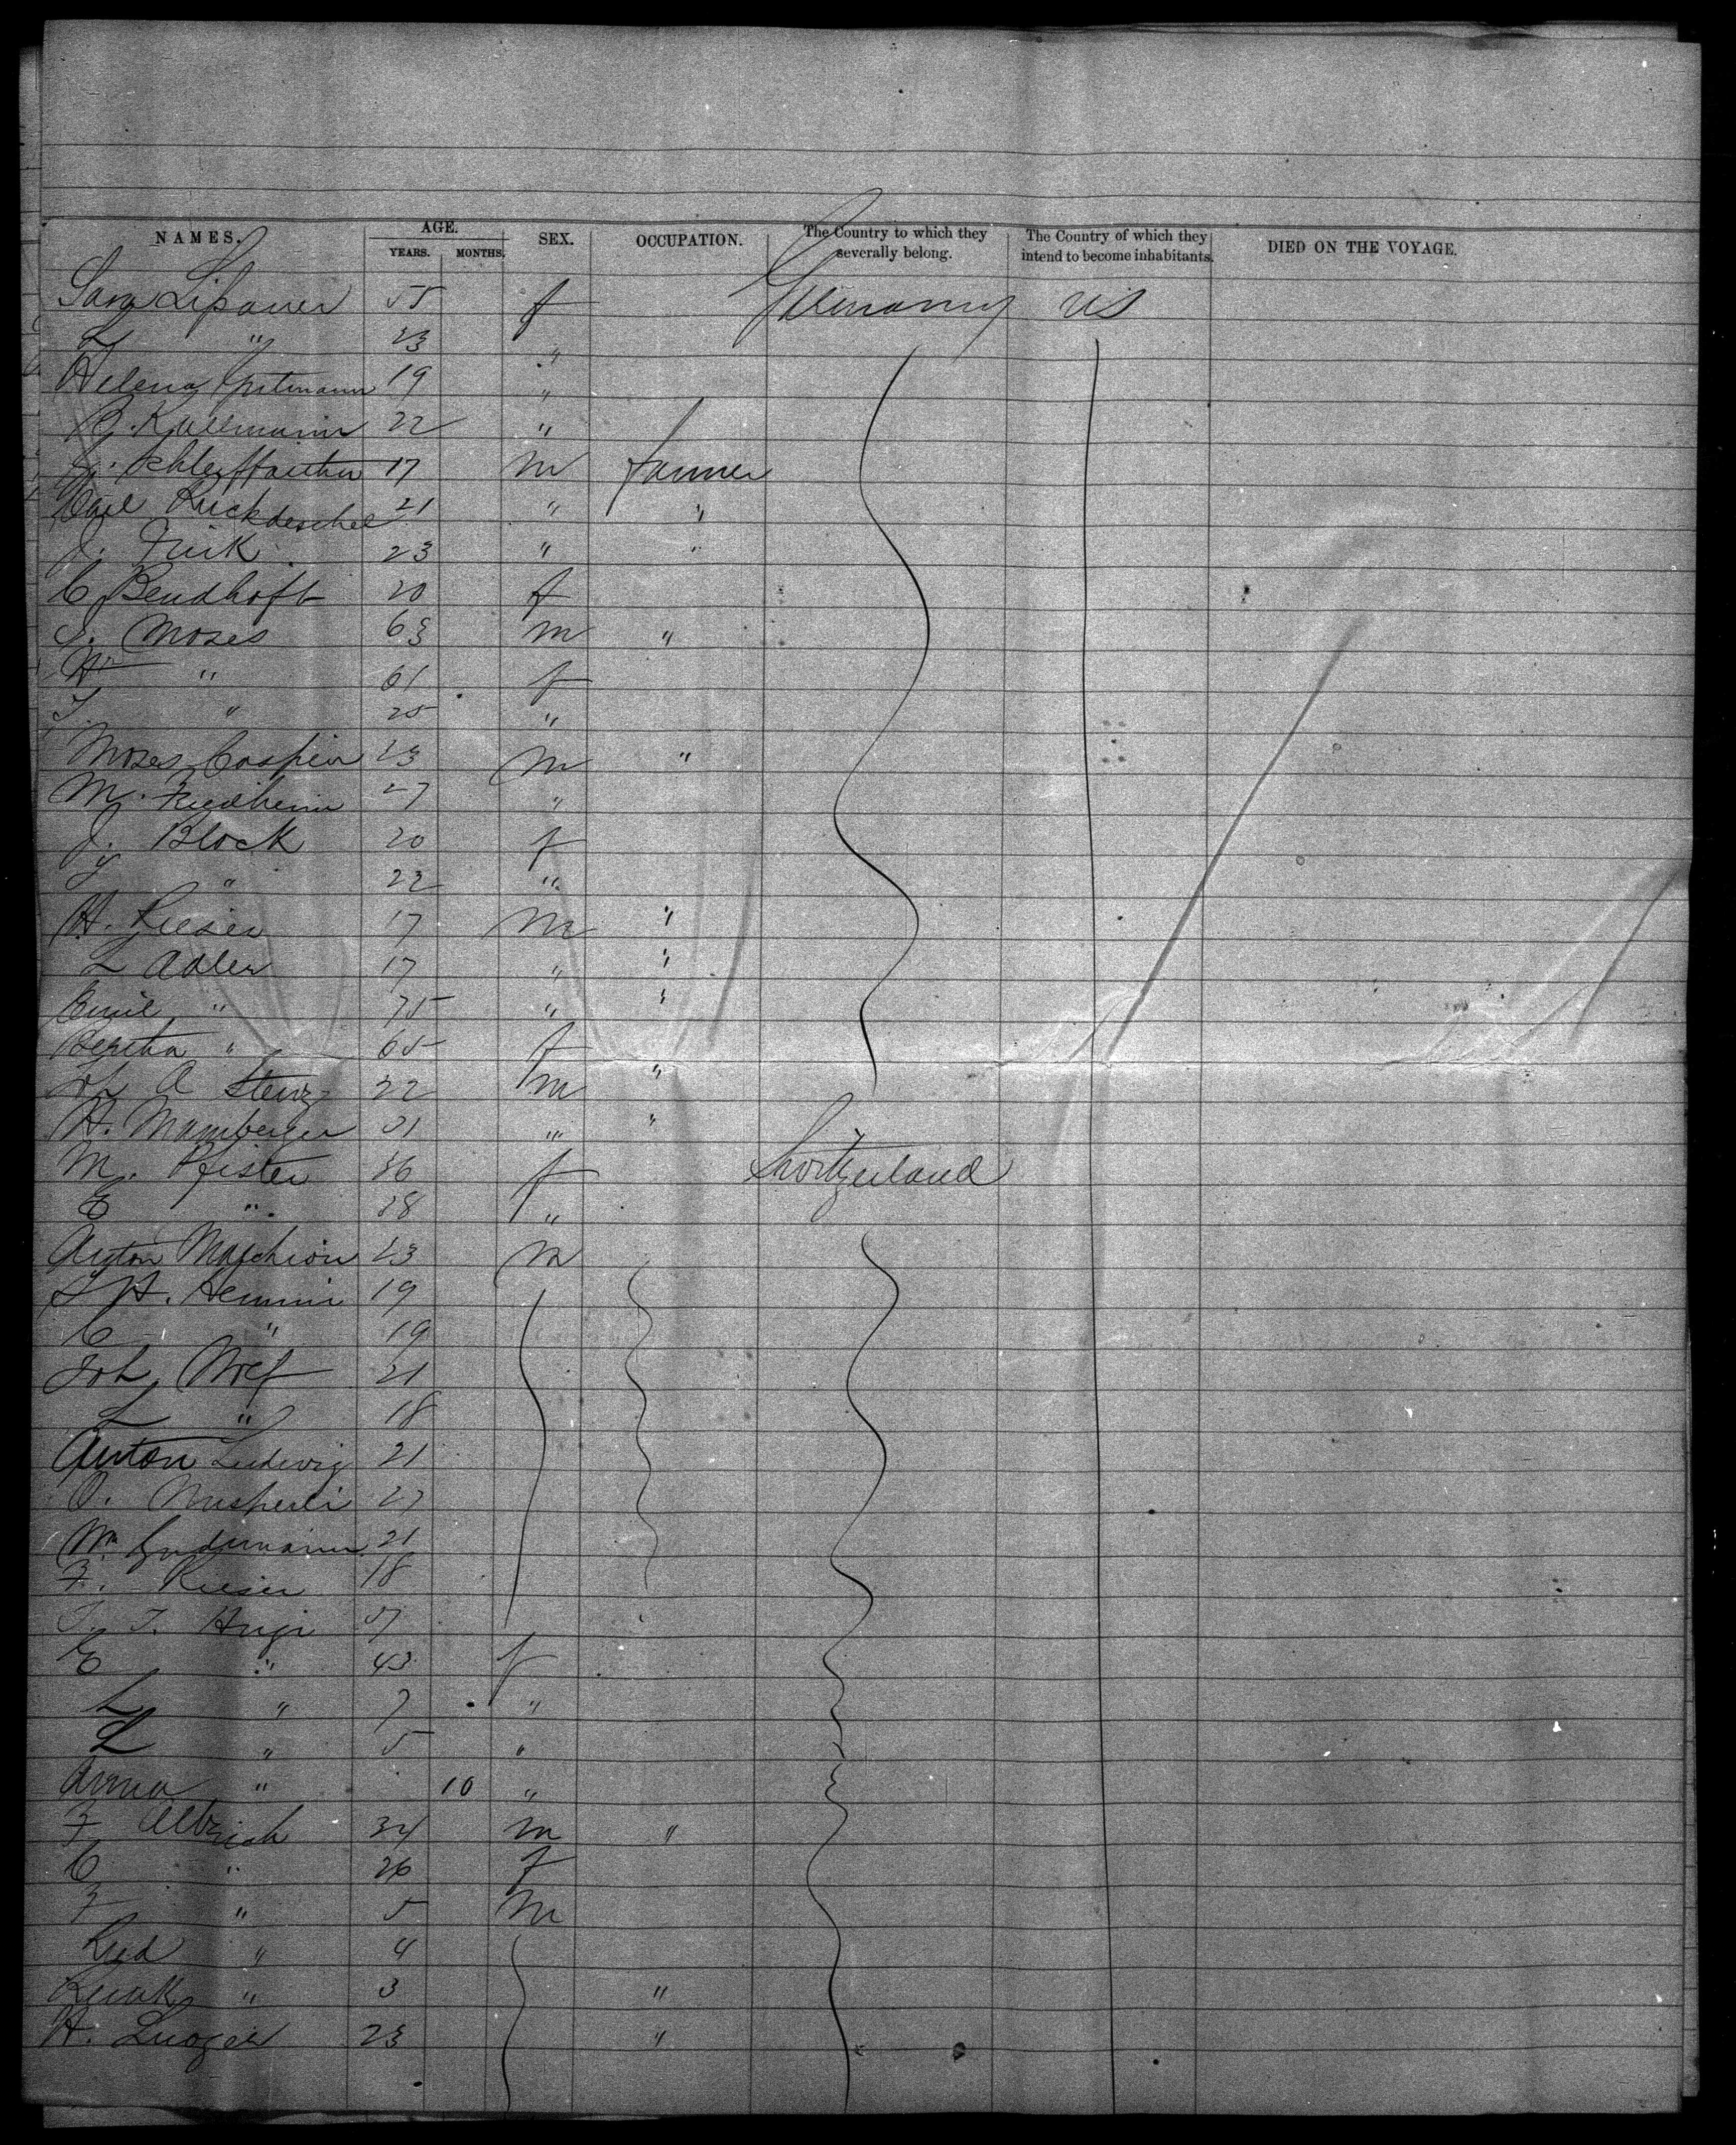 NAMES. AGE. YEARS. MONTHS. SEX. OCCUPATION. The Country to which they severally belong. The Country of which they intend to become inhabitants. DIED ON THE VOYAGE.
Sara Lipauer 55 f Germany US
L " 23 "
Helena Gutmann 19 "
B. Kallmann 22 "
17 m farmer
Carl Ruckdeschel 21 " "
J. 23 " "
C Bendhoft 20 f
S. Moses 63 m "
H " 61 f
T. " 25 "
Moses Caspier 23 m "
M. Friedheim 27 "
J. Block 20 f
Y " 22 "
H. Rieser 17 m "
L Adler 17 " "
Emil " 75 " "
Bertha " 65 f
Joh A Stenz 22 m "
H. Mamberger 31 " "
M. Pfister 36 f Switzerland
E " 38 "
Anton Malchion 23 m
L H. Hemmi 19
C " 19
Joh Wolf 21
L " 18
Anton Ludwig 21
O. Nusperli 27
Wm Gudemann 21
F. Rieser 18
J. J. Hugi 37
E " 43 f
L " 7 "
L " 5 "
Anna " 10 "
F Albrich 34 m "
C " 26 f
F " 5 m
Rud " 4
" 3 "
H. 23 "